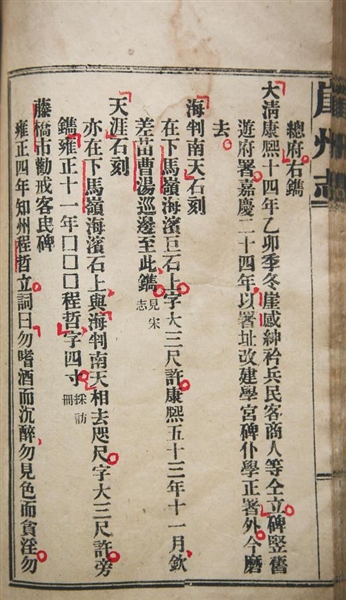 崖州志
總府右鐫
大清康熙十四年乙卯季冬崖感紳衿兵民客商人等仝立碑竪舊
遊府署嘉慶二十四年以署址改建學宮碑仆學正署外今磨
去
海判南天石刻
在下馬嶺海濱巨石上字大三尺許康熙五十三年十一月欽
差苗曹湯巡邊至此鐫見宋志
天涯石刻
亦在下馬嶺海濱石上與海判南天相去咫尺字大三尺許旁
鐫雍正十一年囗囗囗程哲字四寸採訪冊
藤橋市勸戒客民碑
雍正四年知州程哲立詞曰勿嗜酒而沉醉勿見色而貪淫勿